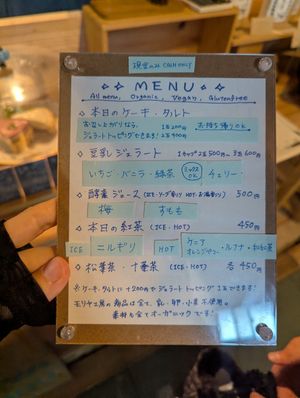 現金のみ CASH ONLY
MENU
All menu, Organic, Vegan, Glutenfree
本日のケーキ・タルト
お召し上がりなら、
ジェラートトッピングできます!
お持ち帰りOK
豆乳ジェラート 1カップ 2玉500円〜3玉600円
いちご・バニラ・緑茶 ミックスOK チェリー
酵素ジュース (ICE・ソーダ割り HOT・お湯割り) 500円
梅 すもも
本日の紅茶 (ICE・HOT) 450円
ICE ニルギリ HOT ケニア・ルフナ・和紅茶
松葉茶・十番茶 (ICE・HOT) 各450円
※ケーキ、タルトに+200円でジェラートトッピング 1玉できます!
モリヤ工房の商品は全て、乳・卵・小麦不使用。
素材も全てオーガニックです!